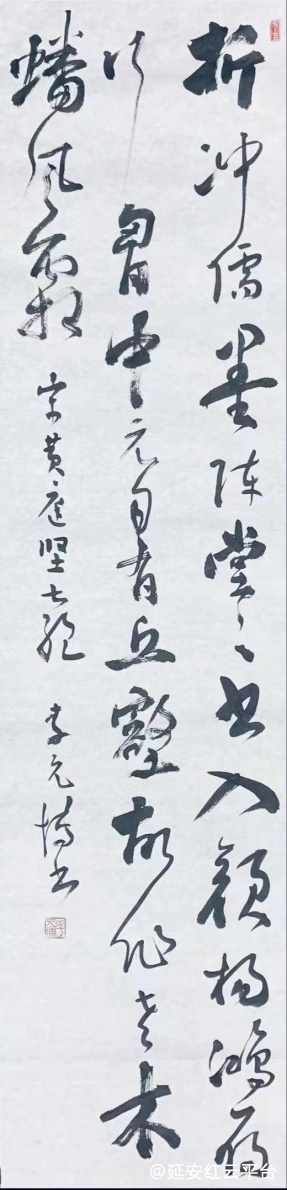 折冲儒墨阵堂々书入颜杨鸿雁
行胷中元自有丘壑故作老木
蟠风霜 宋黄庭坚七绝 李元博书
@延安红云平台